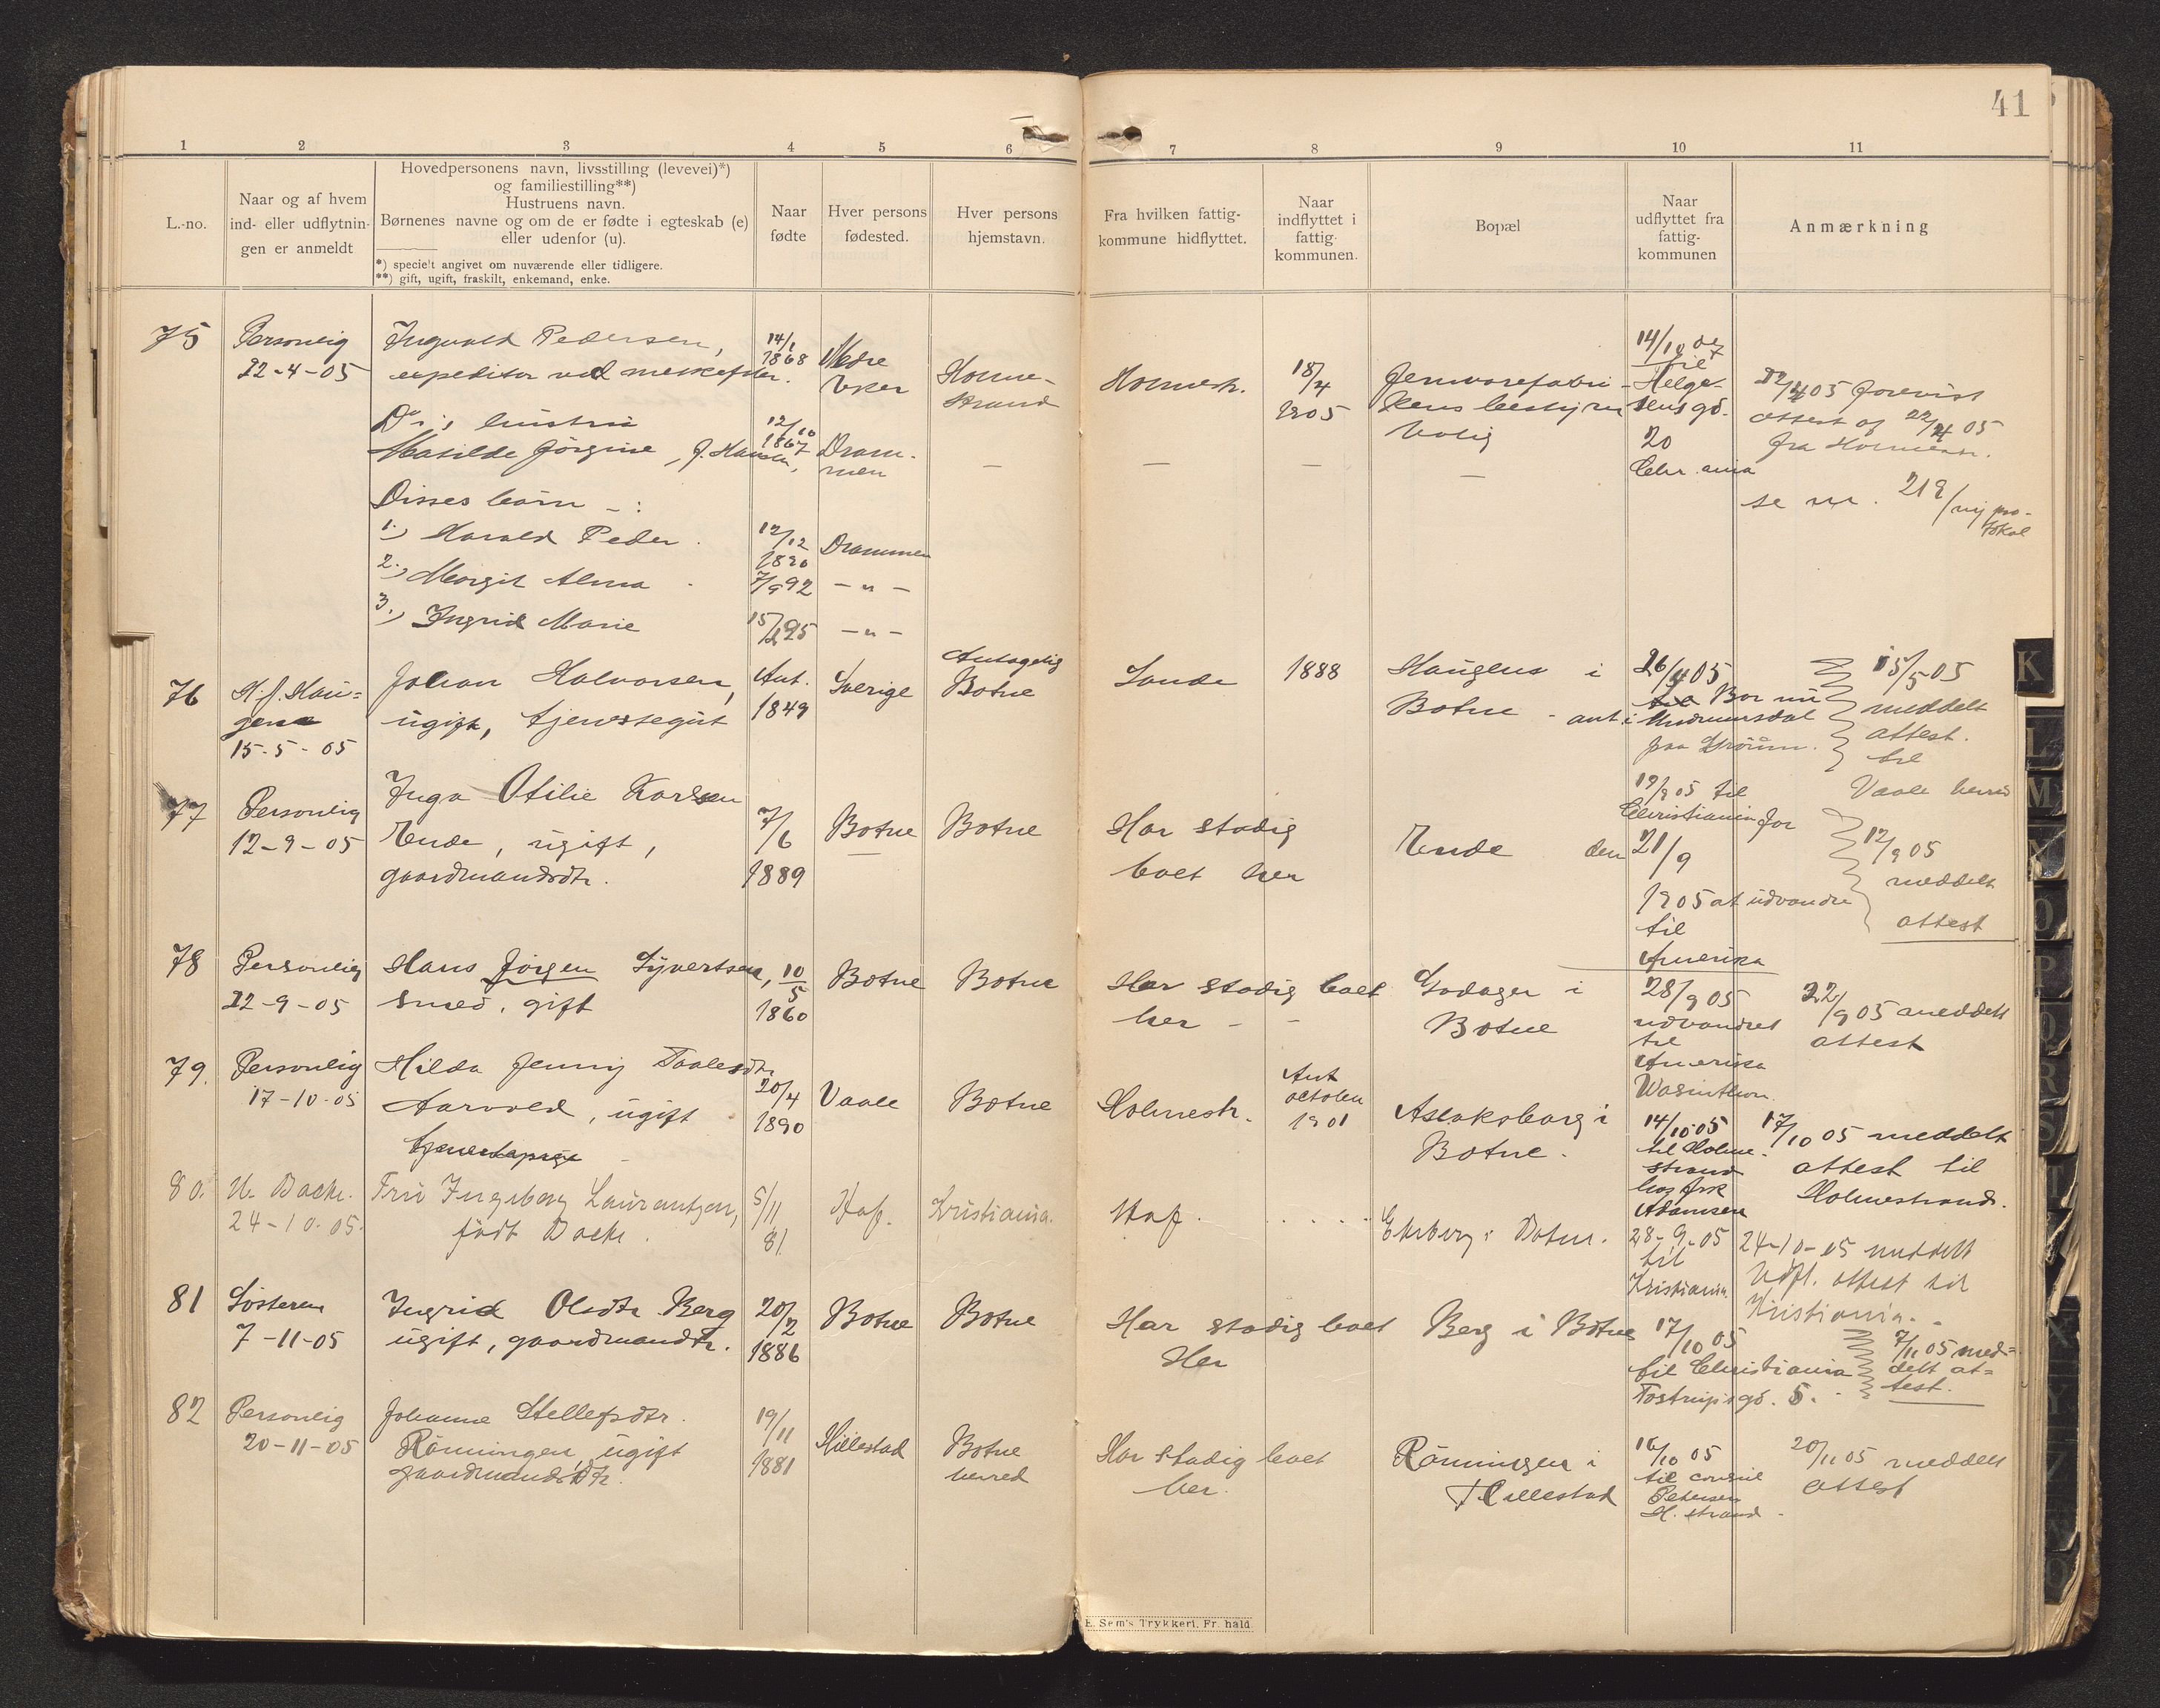 41
1 2 3 4 5 6 7 8 9 10 11
L.-no.
Naar og af hvem
ind- eller udflytnin-
gen er anmeldt
Hovedpersonens navn, livsstilling (levevei)*)
og familiestilling**)
Hustruens navn.
Børnenes navne og om de er fødte i egteskab (e)
eller udenfor (u).
*) specielt angivet om nuværende eller tidligere.
**) gift, ugift, fraskilt, enkemand, enke.
Naar
fødte
Hver persons
fødested.
Hver persons
hjemstavn.
Fra hvilken fattig-
kommune hidflyttet.
Naar
indflyttet i
fattig-
kommunen.
Bopæl
Naar
udflyttet fra
fattig-
kommunen
Anmærkning
75
Personlig
22-4-05
Ingvald Pedersen,
expeditør ved
Do's hustru
Matilde Jörgine, f. Hansen,
Disses börn -:
1.) Harald Peder.
2.) Margit Alma
3.) Ingrid Marie
14/1
1868
12/10
1867
12/12
1890
7/9 92
15/ 95
Nedre
Eker
Dram-
men
Drammen
- " -
- " -
Holme-
strand
—
Holmestr.
—
18/4
1905
—
Jernvarefabri-
kens bestyrer
bolig
—
14/10 07
til
Helge-
sens gd.
20
Chr.ania
22/4 05 forevist
attest af 22/4 05
fra Holmestr.
se nr. 218/ny pro-
tokol
76
H. J. Hau-
gene
15-5-05
Johan Halvorsen,
ugift, tjenstegut
Ant.
1849
Sverige
Antagelig
Botne
Sande
1888
Haugene i
Botne - ant. i
26/4 05
Bor nu
Undrumsdal
paa
15/5-05
meddelt
attest.
til
Vaale herred
77
Personlig
12-9-05
Inga Otilie Karlsen
Ende, ugift,
gaardmandsdtr.
7/6
1889
Botne
Botne
Har stadig
boet her
Ende den
19/9 05 til
Christiania for
21/9
1905 at udvandre
til
Amerika
12/9 05
meddelt
attest
78
Personlig
22-9-05
Hans Jörgen Syvertsen,
smed, gift
10/5
1860
Botne
Botne
Har stadig boet
her -
Sodager i
Botne
28/9 05
udvandret
til
Amerika
Wasinthon.
22/9 05 meddelt
attest
79.
Personlig
17-10-05
Hilda Jenny Taalesdtr
Aarvold, ugift
tjenestepige
20/4
1890
Vaale
Botne
Holmestr.
Ant
october
1901
Aslaksborg i
Botne.
14/10 05
til Holme-
strand
hos frk
Adamsen
17/10 05 meddelt
attest til
Holmestrand.
80.
N. Backe.
24-10-05.
Fru Ingeborg Laurantzon,
født Backe.
5/11
81
Hof.
Kristiania.
Hof.
. . . . .
Ekeberg i Botne.
28-9-05
til
Kristiania
24-10-05 meddelt
Udfl. attest til
Kristiania.
81
Søsteren
7-11-05
Ingrid Olsdtr Berg
ugift, gaardmandtr.
20/2
1886
Botne
Botne
Har stadig boet
Her
Berg i Botne
17/10 05
til Christiania
Tostrupsgd. 5.
7/11 05 med-
delt at-
test.
82
Personlig
20-11-05
Johanne Stellefsdtr.
Rönningen, ugift
gaardmandsdtr.
19/11
1881
Hillestad
Botne
herred
Har stadig boet
her.
Rönningen i
Hillestad
16/10 05
til consul
Petersen
H. strand.
20/11 05 meddelt
attest
E. Sem's Trykkeri, Fr. hald
K
L
M
N
O
P
Q
R
S
T